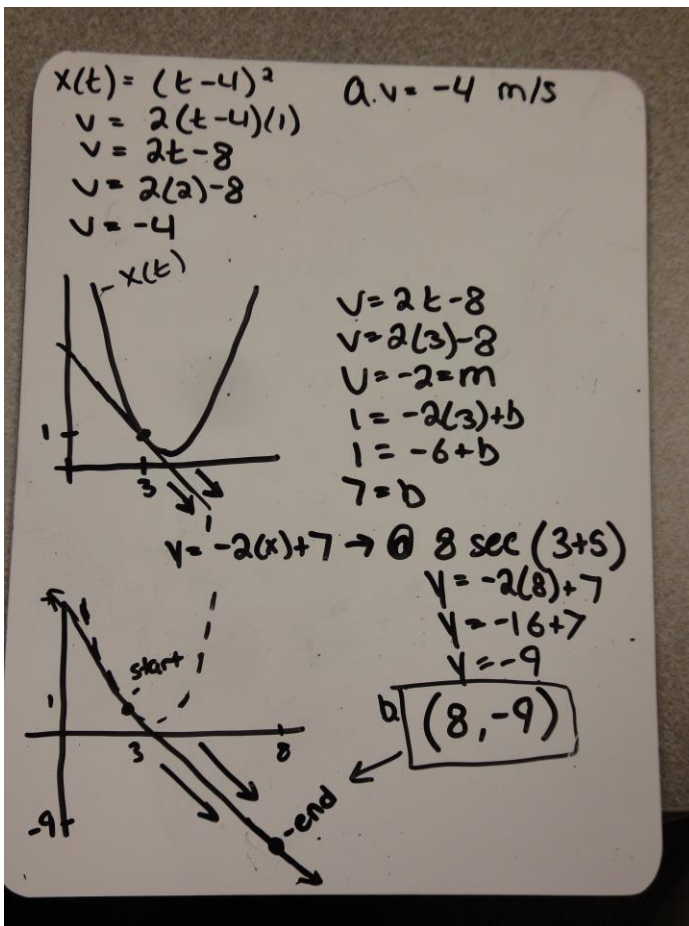 x(t) = (t-4)²
v = 2(t-4)(1)
v = 2t-8
v = 2(2)-8
v = -4
a. v = -4 m/s
x(t)
1
3
v = 2t-8
v = 2(3)-8
v = -2 = m
1 = -2(3)+b
1 = -6+b
7 = b
y = -2(x)+7 → @ 8 sec (3+5)
y = -2(8)+7
y = -16+7
y = -9
b. (8,-9)
start
1
3
8
-9
-end